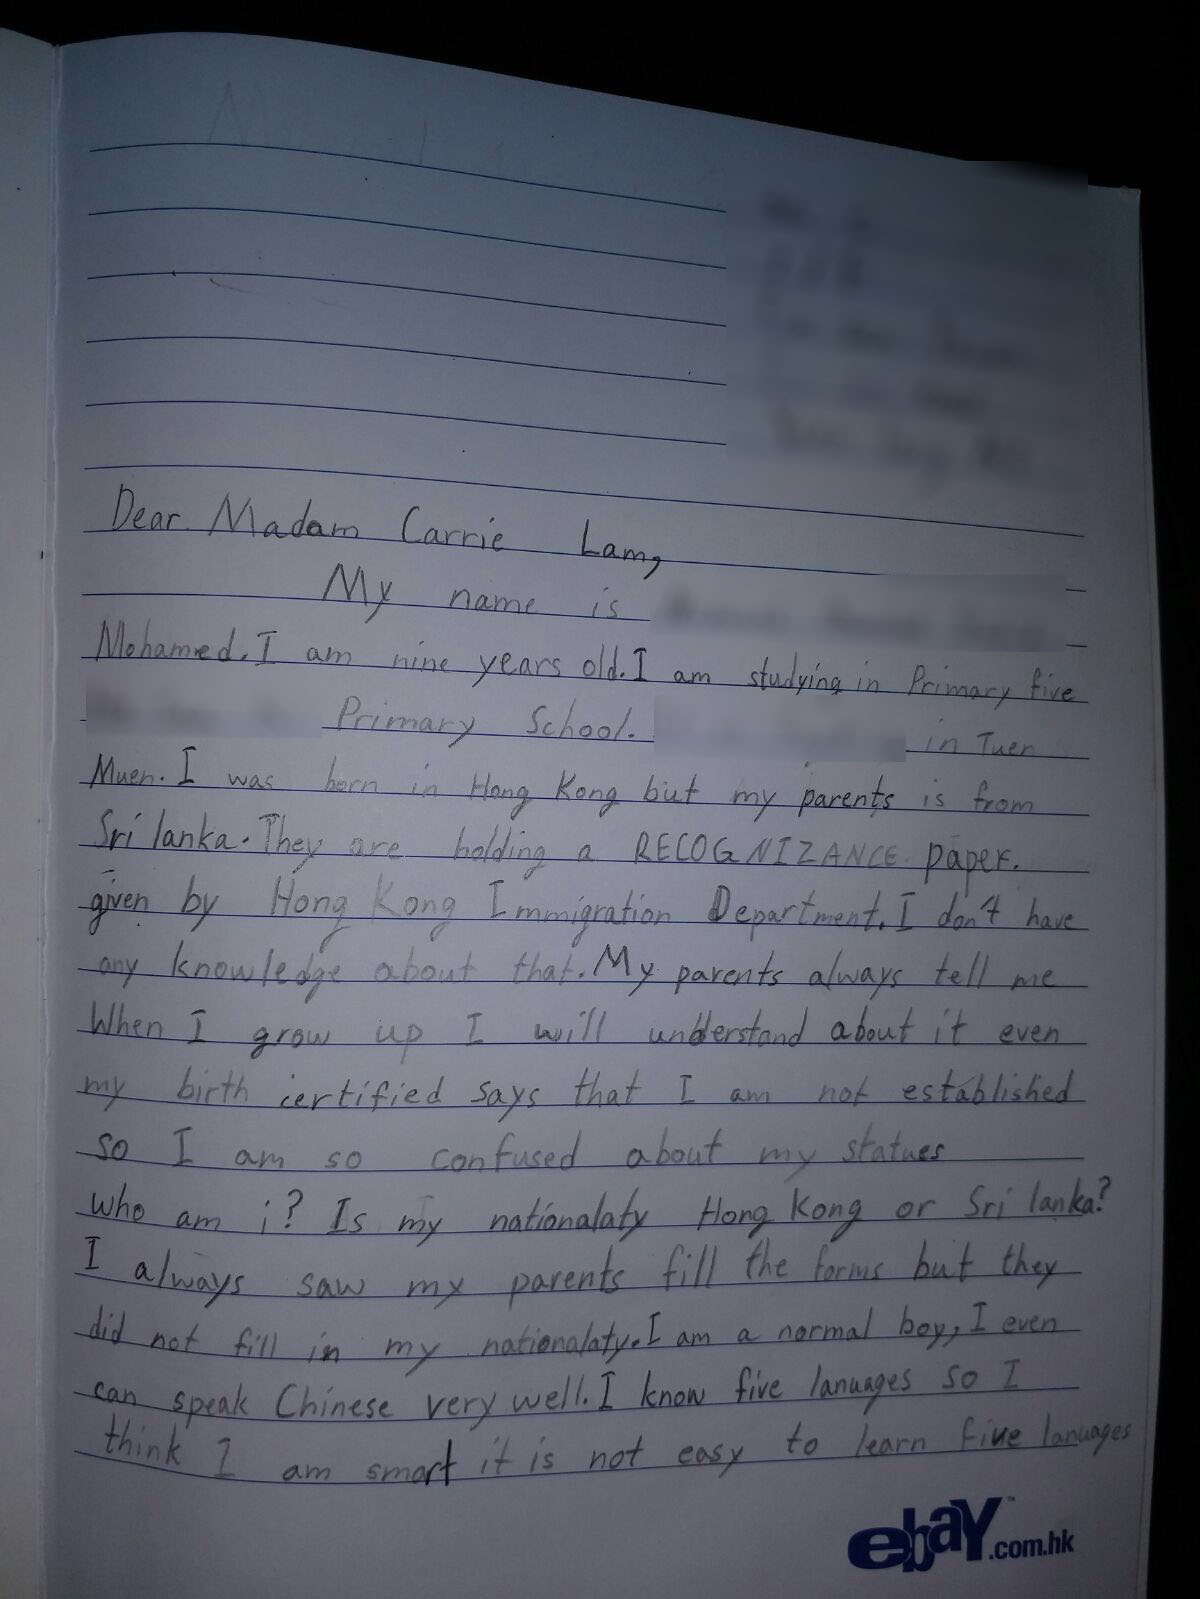 Dear Madam Carrie Lam,
My name is
Mohamed. I am nine years old. I am studying in Primary five
Primary School. in Tuen
Muen. I was born in Hong Kong but my parents is from
Sri lanka. They are holding a RECOGNIZANCE paper.
given by Hong Kong Immigration Department. I don't have
any knowledge about that. My parents always tell me
When I grow up I will understand about it even
my birth certified says that I am not established
so I am so confused about my statues
who am i? Is my nationalaty Hong Kong or Sri lanka?
I always saw my parents fill the forms but they
did not fill in my nationalaty. I am a normal boy, I even
can speak Chinese very well. I know five lanuages so I
think I am smart it is not easy to learn five lanuages
ebay.com.hk